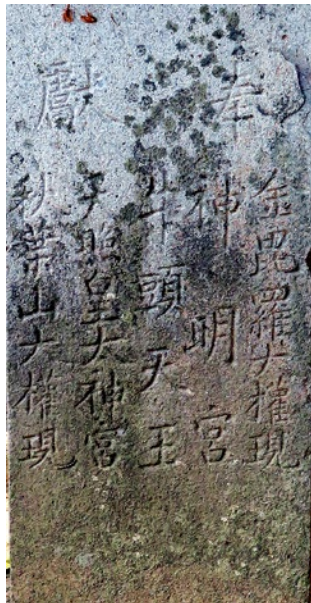 奉獻
金毘羅大權現
神明宮
牛頭天王
天照皇大神宮
秋葉山大權現